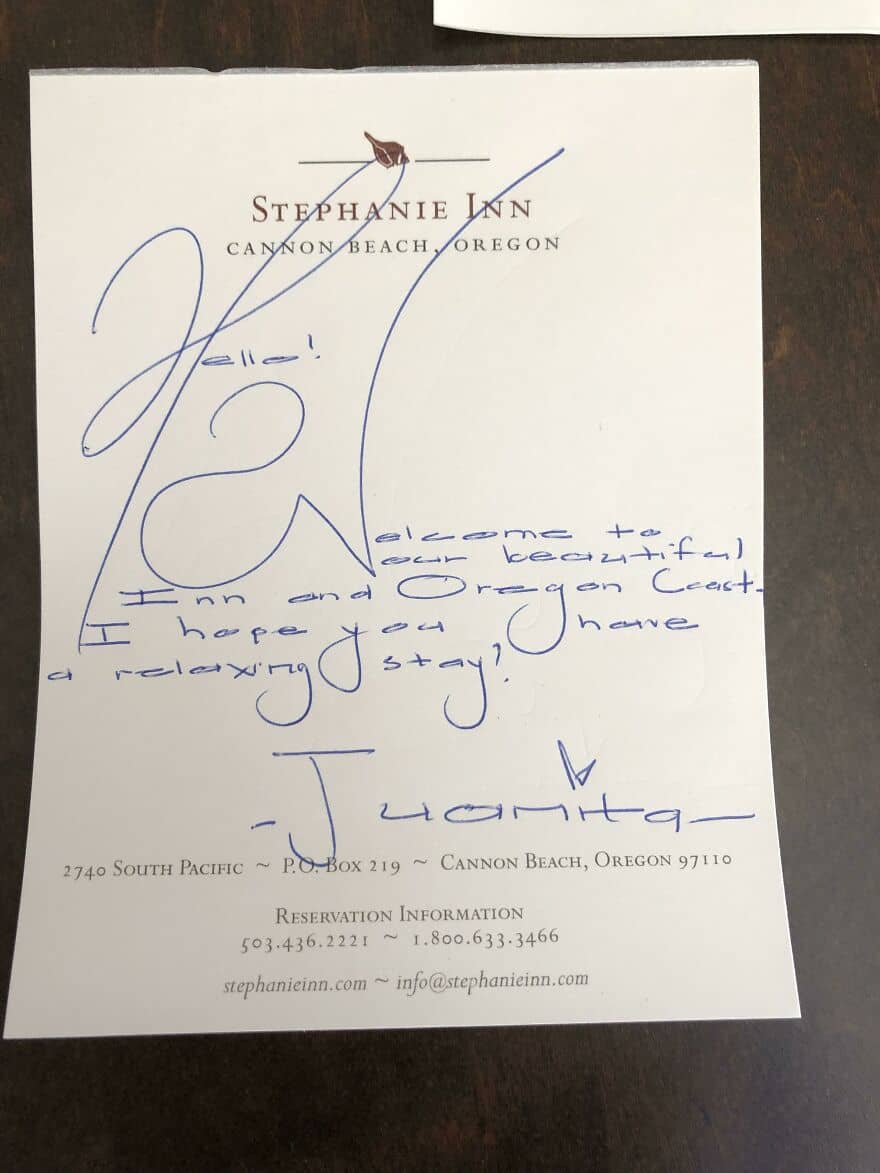 STEPHANIE INN
CANNON BEACH, OREGON
Hello!
Welcome to
our beautiful
Inn and Oregon Coast.
I hope you have
a relaxing stay!
- Juanita -
2740 SOUTH PACIFIC ~ P.O. BOX 219 ~ CANNON BEACH, OREGON 97110
RESERVATION INFORMATION
503.436.2221 ~ 1.800.633.3466
stephanieinn.com ~ info@stephanieinn.com